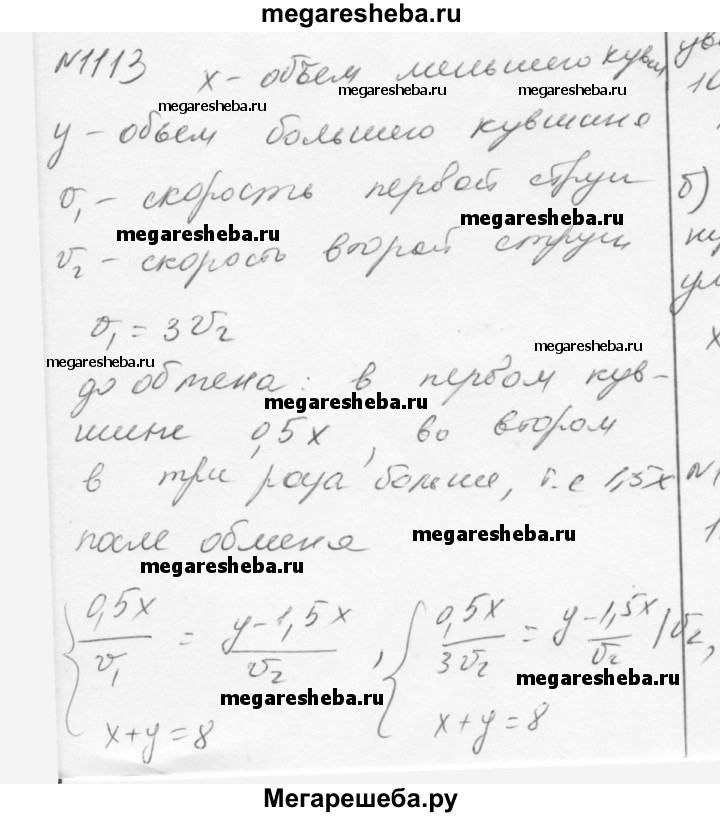 megaresheba.ru
N1113 x - объем меньшего кувш
megaresheba.ru megaresheba.ru megaresheba.ru
y - объем большего кувшина
v₁ - скорость первой струи
megaresheba.ru
megaresheba.ru
v₂ - скорость второй струи
v₁ = 3v₂
megaresheba.ru
megaresheba.ru
до обмена: в первом кув-
megaresheba.ru
шине 0,5x, во втором
в три раза больше, т.е 1,5x
после обмена
megaresheba.ru
megaresheba.ru
{ 0,5x/v₁ = y-1,5x/v₂ , { 0,5x/3v₂ = y-1,5x/v₂ /v₂,
megaresheba.ru
megaresheba.ru
x+y=8 x+y=8
Мегарешеба.ру
ув
10
б)
x
N1
1